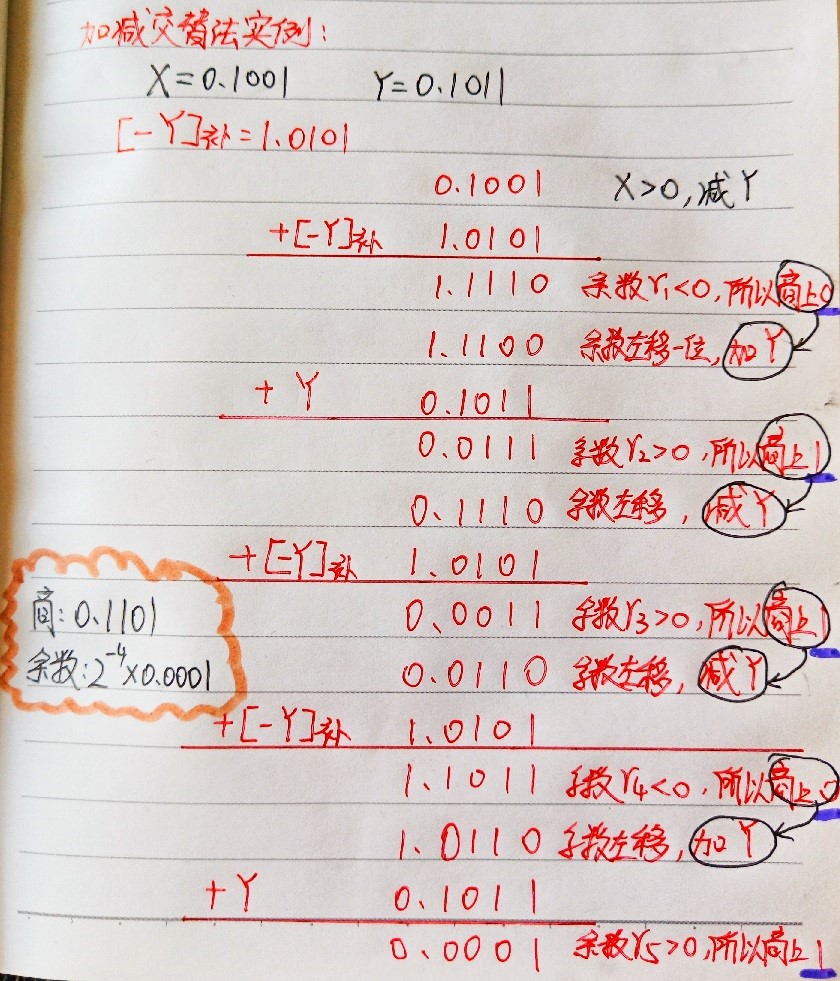 加减交替法实例:
X=0.1001 Y=0.1011
[-Y]补=1.0101
0.1001 X>0,减Y
+[-Y]补 1.0101
1.1110 余数r₁<0,所以商上0
1.1100 余数左移一位,加Y
+ Y 0.1011
0.0111 余数r₂>0,所以商上1
0.1110 余数左移,减Y
+[-Y]补 1.0101
0.0011 余数r₃>0,所以商上1
0.0110 余数左移,减Y
+[-Y]补 1.0101
1.1011 余数r₄<0,所以商上0
1.0110 余数左移,加Y
+ Y 0.1011
0.0001 余数r₅>0,所以商上1
商:0.1101
余数:2⁻⁴×0.0001